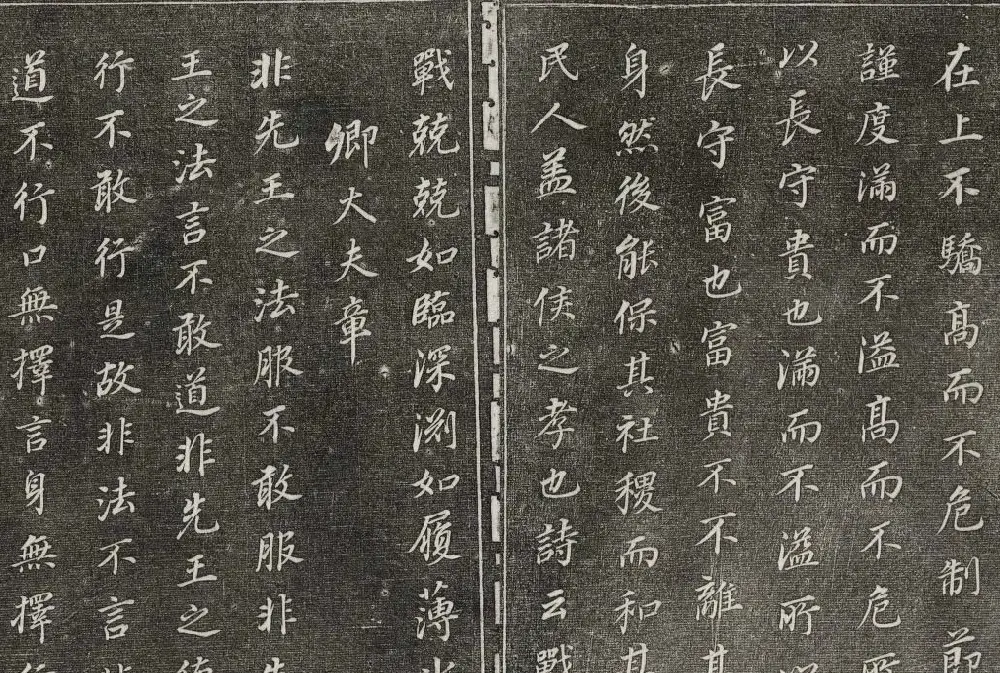 在上不驕高而不危制節
謹度滿而不溢高而不危所
以長守貴也滿而不溢所以
長守富也富貴不離其
身然後能保其社稷而和其
民人盖諸侯之孝也詩云戰
戰兢兢如臨深淵如履薄冰
卿大夫章
非先王之法服不敢服非先
王之法言不敢道非先王之德
行不敢行是故非法不言非
道不行口無擇言身無擇行